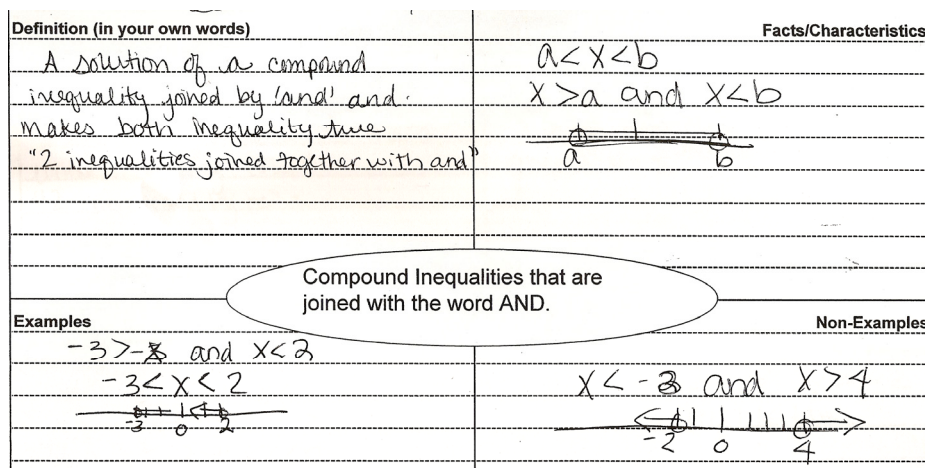 Definition (in your own words)
A solution of a compound
inequality joined by 'and' and
makes both inequality true
"2 inequalities joined together with and"
Facts/Characteristics
a<x<b
x>a and x<b
a b
Compound Inequalities that are
joined with the word AND.
Examples
and x<2
-3<x<2
-3 0 2
Non-Examples
x<- and x>4
-2 0 4